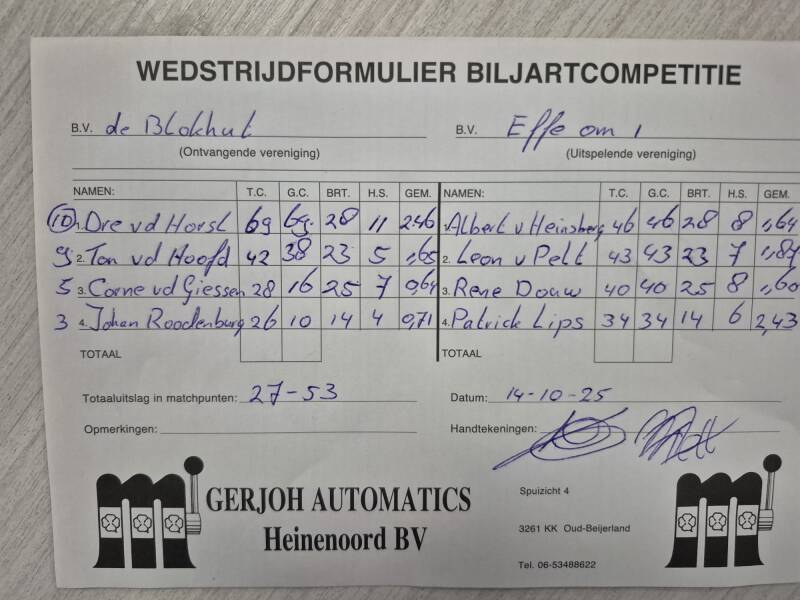 WEDSTRIJDFORMULIER BILJARTCOMPETITIE
B.V. de Blokhut B.V. Effe om 1
(Ontvangende vereniging) (Uitspelende vereniging)
NAMEN: T.C. G.C. BRT. H.S. GEM. NAMEN: T.C. G.C. BRT. H.S. GEM.
10 1. Dre vd Horst 69 69 28 11 2,46 1. Albert v Heinsberg 46 46 28 8 1,64
9 2. Ton vd Hoofd 42 38 23 5 1,65 2. Leon v Pelt 43 43 23 7 1,87
5 3. Corne vd Giessen 28 16 25 7 0,64 3. Rene Douw 40 40 25 8 1,60
3 4. Johan Roodenburg 26 10 14 4 0,71 4. Patrick Lips 34 34 14 6 2,43
TOTAAL TOTAAL
Totaaluitslag in matchpunten: 27-53 Datum: 14-10-25
Opmerkingen: Handtekeningen:
GERJOH AUTOMATICS
Heinenoord BV
Spuizicht 4
3261 KK Oud-Beijerland
Tel. 06-53488622